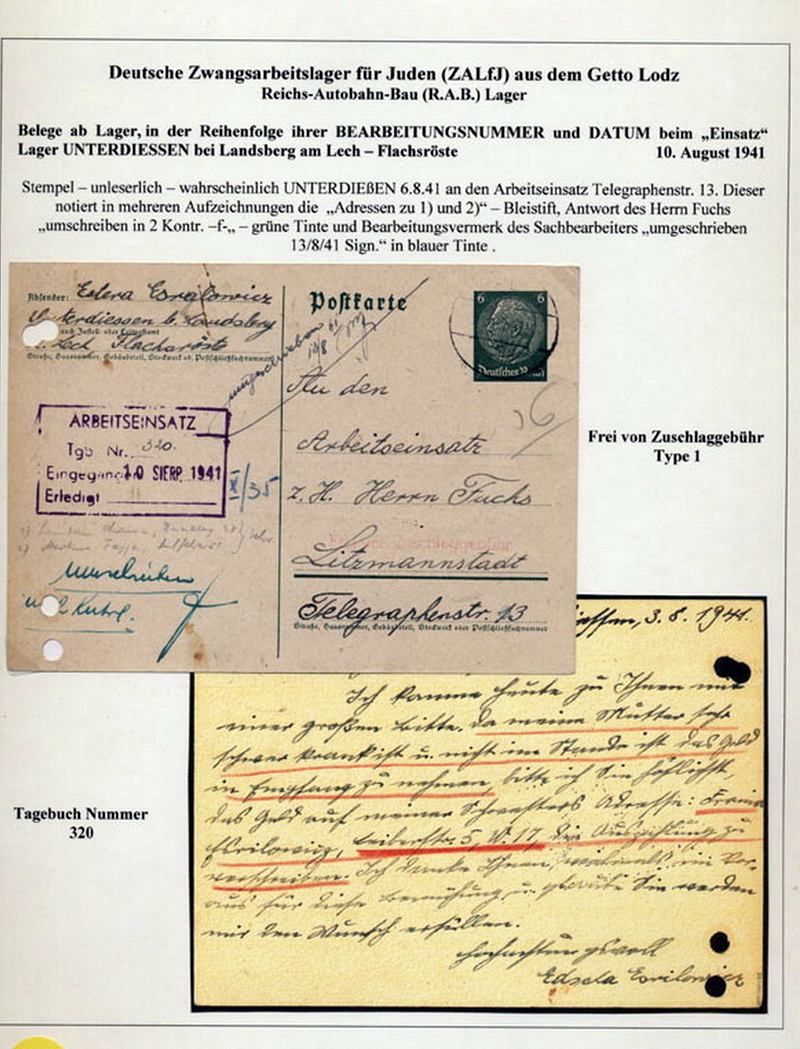 Deutsche Zwangsarbeitslager für Juden (ZALfJ) aus dem Getto Lodz
Reichs-Autobahn-Bau (R.A.B.) Lager
Belege ab Lager, in der Reihenfolge ihrer BEARBEITUNGSNUMMER und DATUM beim „Einsatz“
Lager UNTERDIESSEN bei Landsberg am Lech – Flachsröste 10. August 1941
Stempel – unleserlich – wahrscheinlich UNTERDIEßEN 6.8.41 an den Arbeitseinsatz Telegraphenstr. 13. Dieser
notiert in mehreren Aufzeichnungen die „Adressen zu 1) und 2)“ – Bleistift, Antwort des Herrn Fuchs
„umschreiben in 2 Kontr. –f-„ – grüne Tinte und Bearbeitungsvermerk des Sachbearbeiters „umgeschrieben
13/8/41 Sign.“ in blauer Tinte .
Absender: Estera Esralowicz
Unterdiessen b. Landsberg
Lech Flachsröste
Straße, Hausnummer, Gebäudeteil, Stockwerk od. Postschließfachnummer
Postkarte
6 6
Deutsches Reich
umgeschrieben
13/8
An den
Arbeitseinsatz
z. H. Herrn Fuchs
Litzmannstadt
Telegraphenstr. 13
Straße, Hausnummer, Gebäudeteil, Stockwerk oder Postschließfachnummer
ARBEITSEINSATZ
Tgb Nr. 320.
Eingegangen 10 SIERP 1941
Erledigt
/35
Umschreiben
2 Kntrl.
Frei von Zuschlaggebühr
Type 1
Tagebuch Nummer
320
3.8.1941.
Ich komme heute zu Ihnen mit
einer großen Bitte. Da meine Mutter sehr
schwer krank ist u. nicht im Stande ist das Geld
in Empfang zu nehmen, bitte ich Sie höflichst,
das Geld auf meiner Schwesters Adresse: Frania
Esrilowicz, 5, W. 17 die Auszahlung zu
verschreiben. Ich danke Ihnen im Vor-
aus für diese Bemühung u. glaube Sie werden
mir den Wunsch erfüllen.
Hochachtungsvoll
Esrilowicz